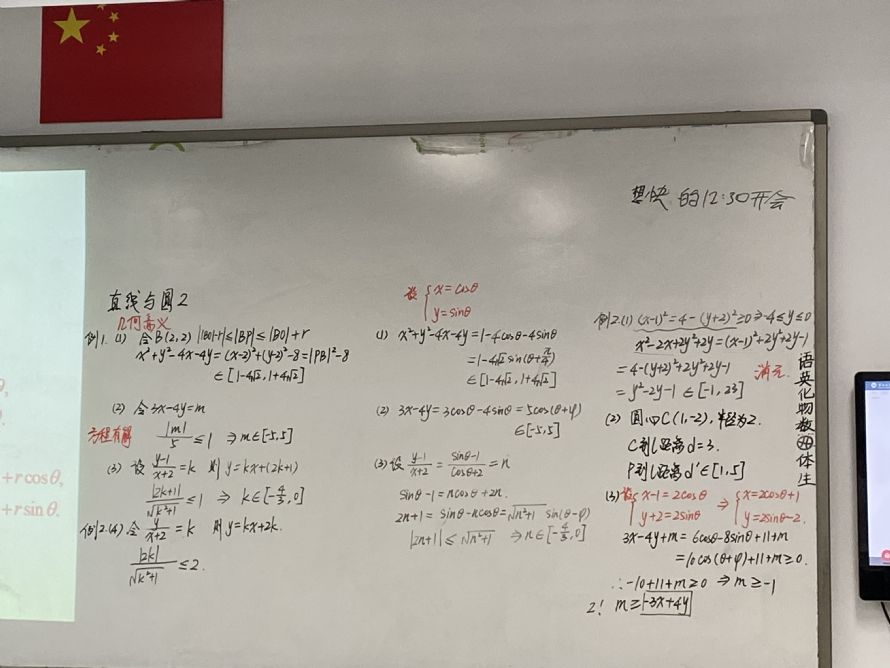 想快的12:30开会
直线与圆2
几何意义
例1. (1) 令B(2,2) ||BO|-r|≤|BP|≤|BO|+r
x²+y²-4x-4y=(x-2)²+(y-2)²-8=|PB|²-8
∈[1-4√2,1+4√2]
(2) 令3x-4y=m
方程有解 |m|/5≤1 ⇒m∈[-5,5]
(3) 设 (y-1)/(x+2)=k 则 y=kx+(2k+1)
|2k+1|/√(k²+1)≤1 ⇒ k∈[-4/3,0]
例2.(4) 令 y/(x+2)=k 则y=kx+2k.
|2k|/√(k²+1)≤2.
设 {x=cosθ
y=sinθ
(1) x²+y²-4x-4y=1-4cosθ-4sinθ
=1-4√2sin(θ+π/4)
∈[1-4√2,1+4√2]
(2) 3x-4y=3cosθ-4sinθ=5cos(θ+φ)
∈[-5,5]
(3) 设 (y-1)/(x+2)=(sinθ-1)/(cosθ+2)=n
sinθ-1=ncosθ+2n.
2n+1=sinθ-ncosθ=√(n²+1) sin(θ-φ)
|2n+1|≤√(n²+1) ⇒n∈[-4/3,0]
例2.(1) (x-1)²=4-(y+2)²≥0⇒-4≤y≤0
x²-2x+2y²+2y=(x-1)²+2y²+2y-1
=4-(y+2)²+2y²+2y-1 消元.
=y²-2y-1∈[-1,23]
(2) 圆心C(1,-2),半径为2.
C到l距离d=3.
P到l距离d'∈[1,5]
(3) 设{x-1=2cosθ ⇒ {x=2cosθ+1
y+2=2sinθ y=2sinθ-2.
3x-4y+m=6cosθ-8sinθ+11+m
=10cos(θ+φ)+11+m≥0.
∴-10+11+m≥0 ⇒m≥-1
2! m≥-3x+4y
语英化物数体生
+rcosθ,
+rsinθ.